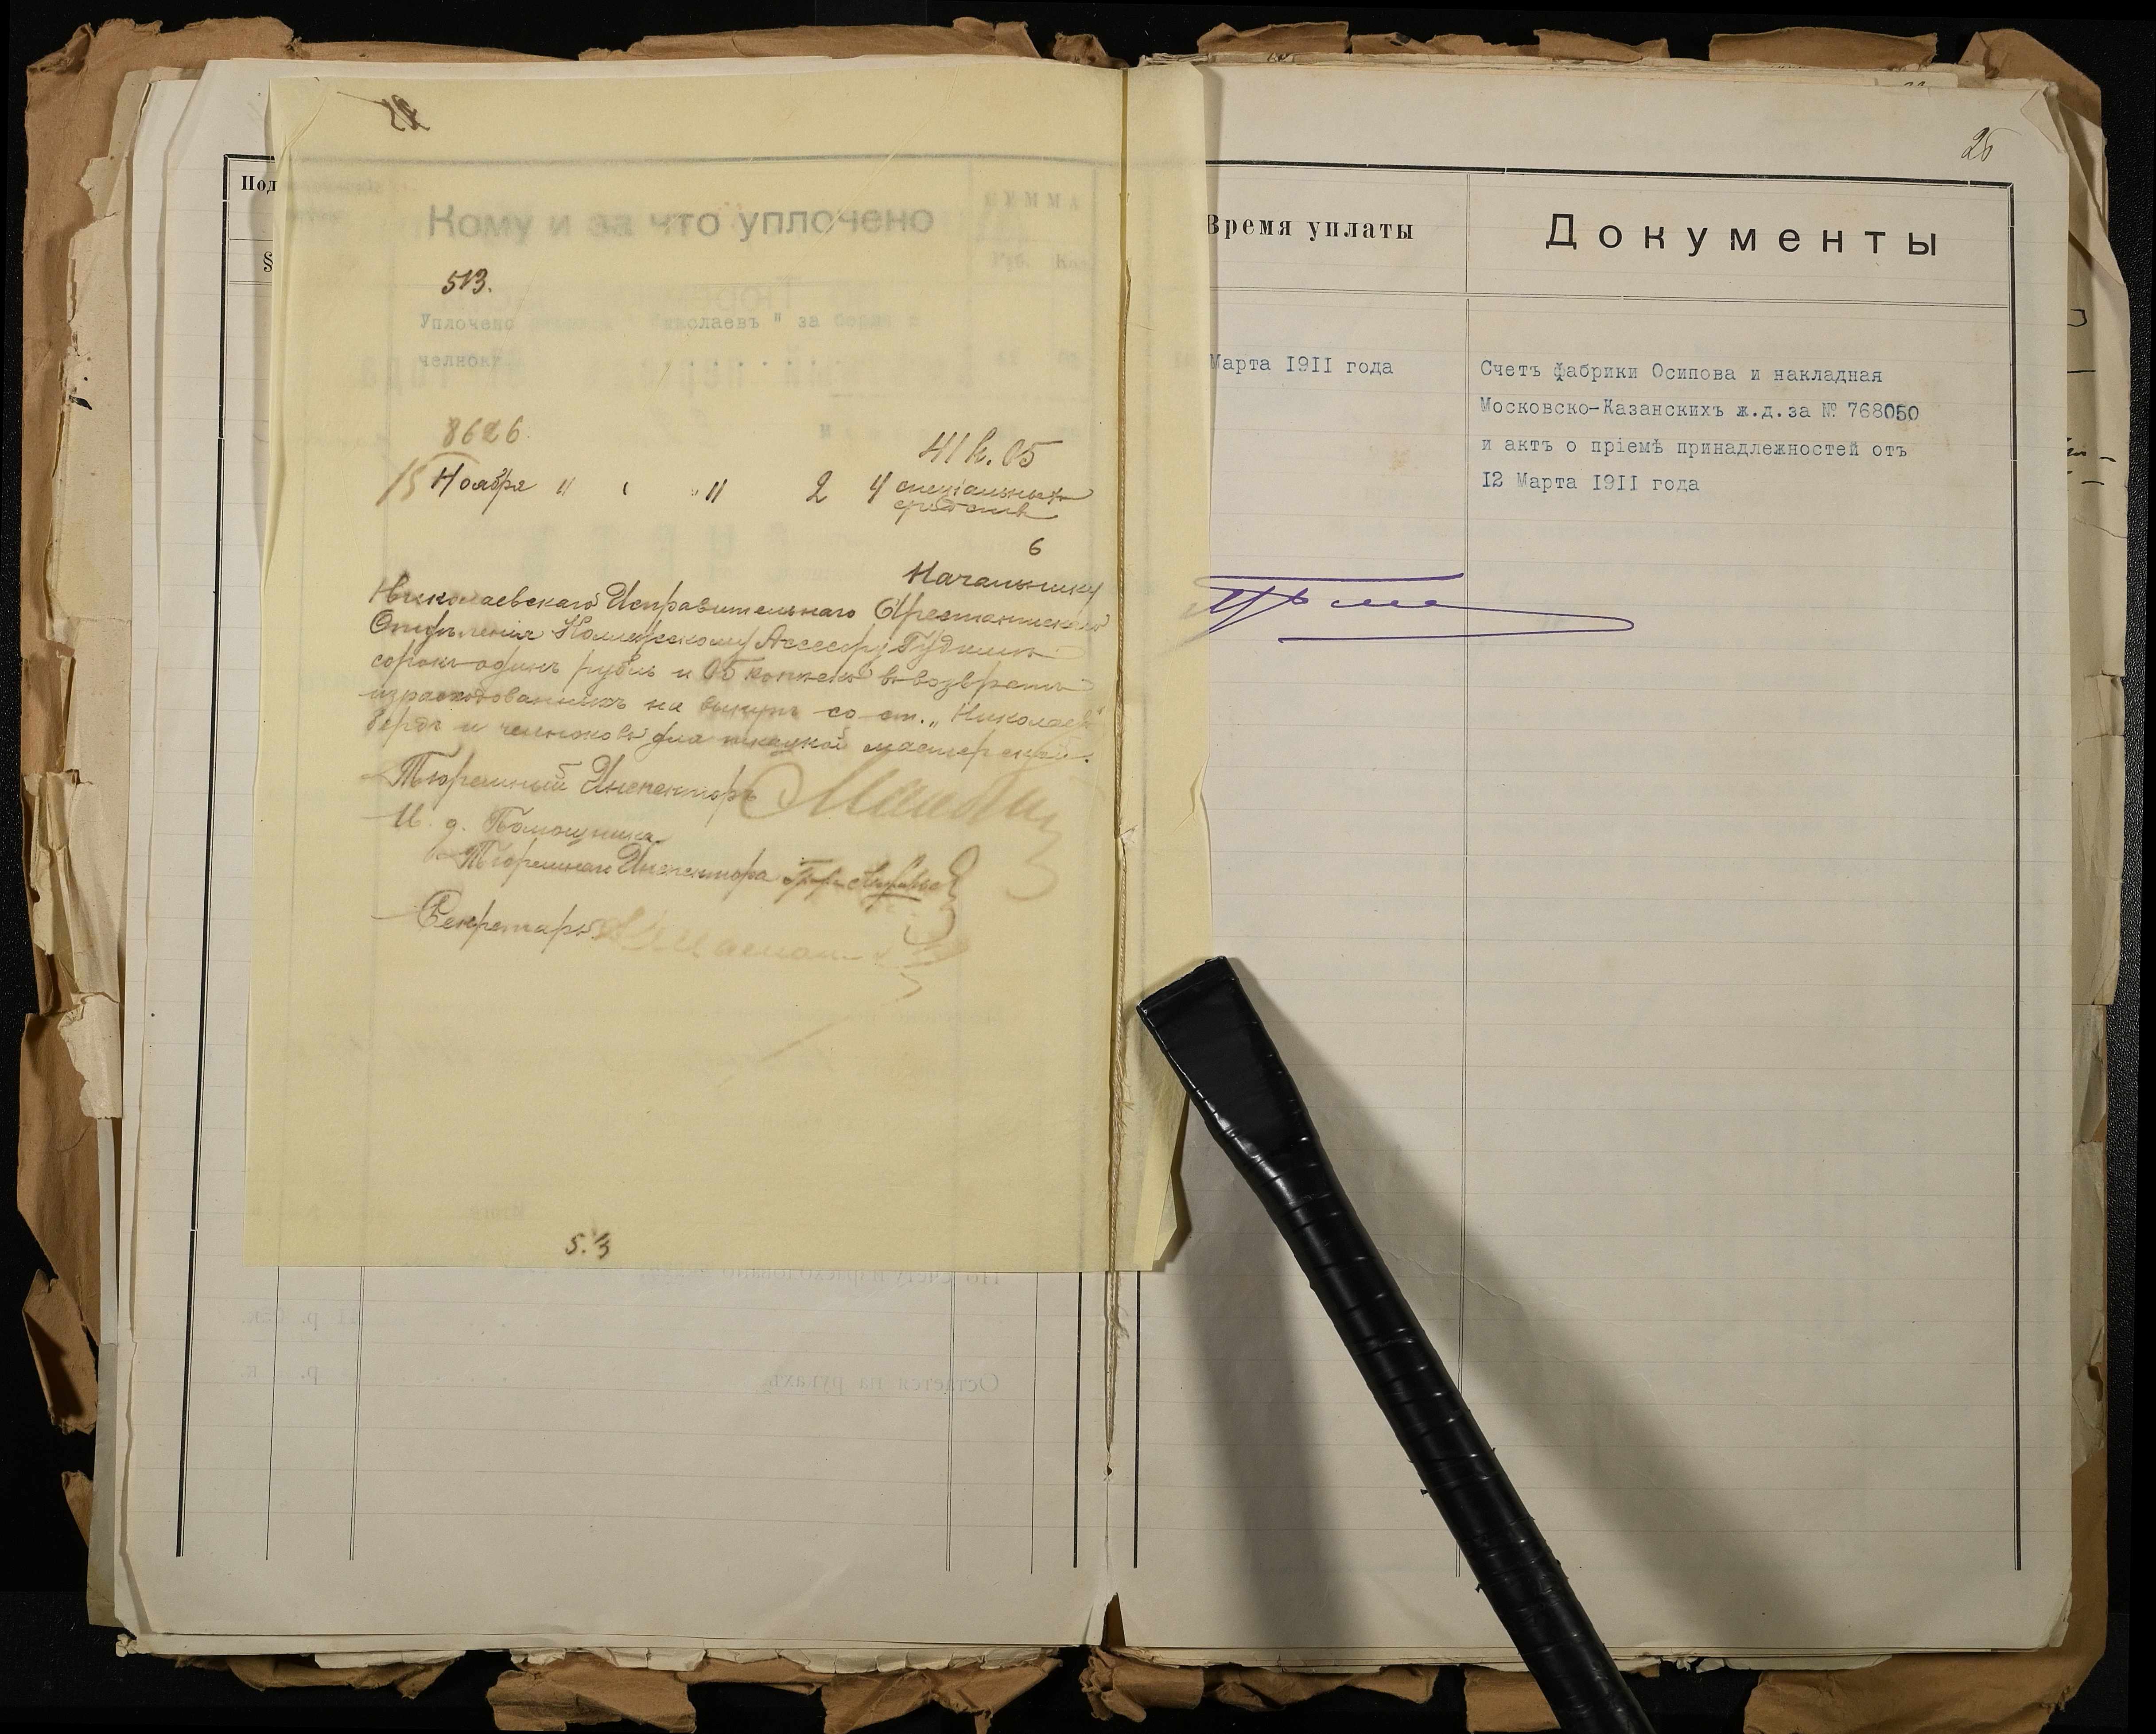 26
Под
§
Кому и за что уплочено
СУММА
Руб. Коп.
513.
Уплочено "Николаевъ" за берда и
челноки
8626.
41 р. 05
15 Ноября " " 2 4 спеціальныхъ
средствъ
6
Начальнику
Николаевскаго Исправительнаго Арестантскаго
Отдѣленія Коллежскому Ассесору Гудимъ
сорокъ один рубль и 05 копѣекъ въ возвратъ
израсходованныхъ на выкупъ со ст. „Николаевъ"
бердъ и челноковъ для ткацкой мастерской.
Тюремный Инспекторъ
И. д. Помощника
Тюремнаго Инспектора
Секретарь
Время уплаты
Документы
Марта 1911 года
Счетъ фабрики Осипова и накладная
Московско-Казанскихъ ж.д. за № 768050
и актъ о пріемѣ принадлежностей отъ
12 Марта 1911 года